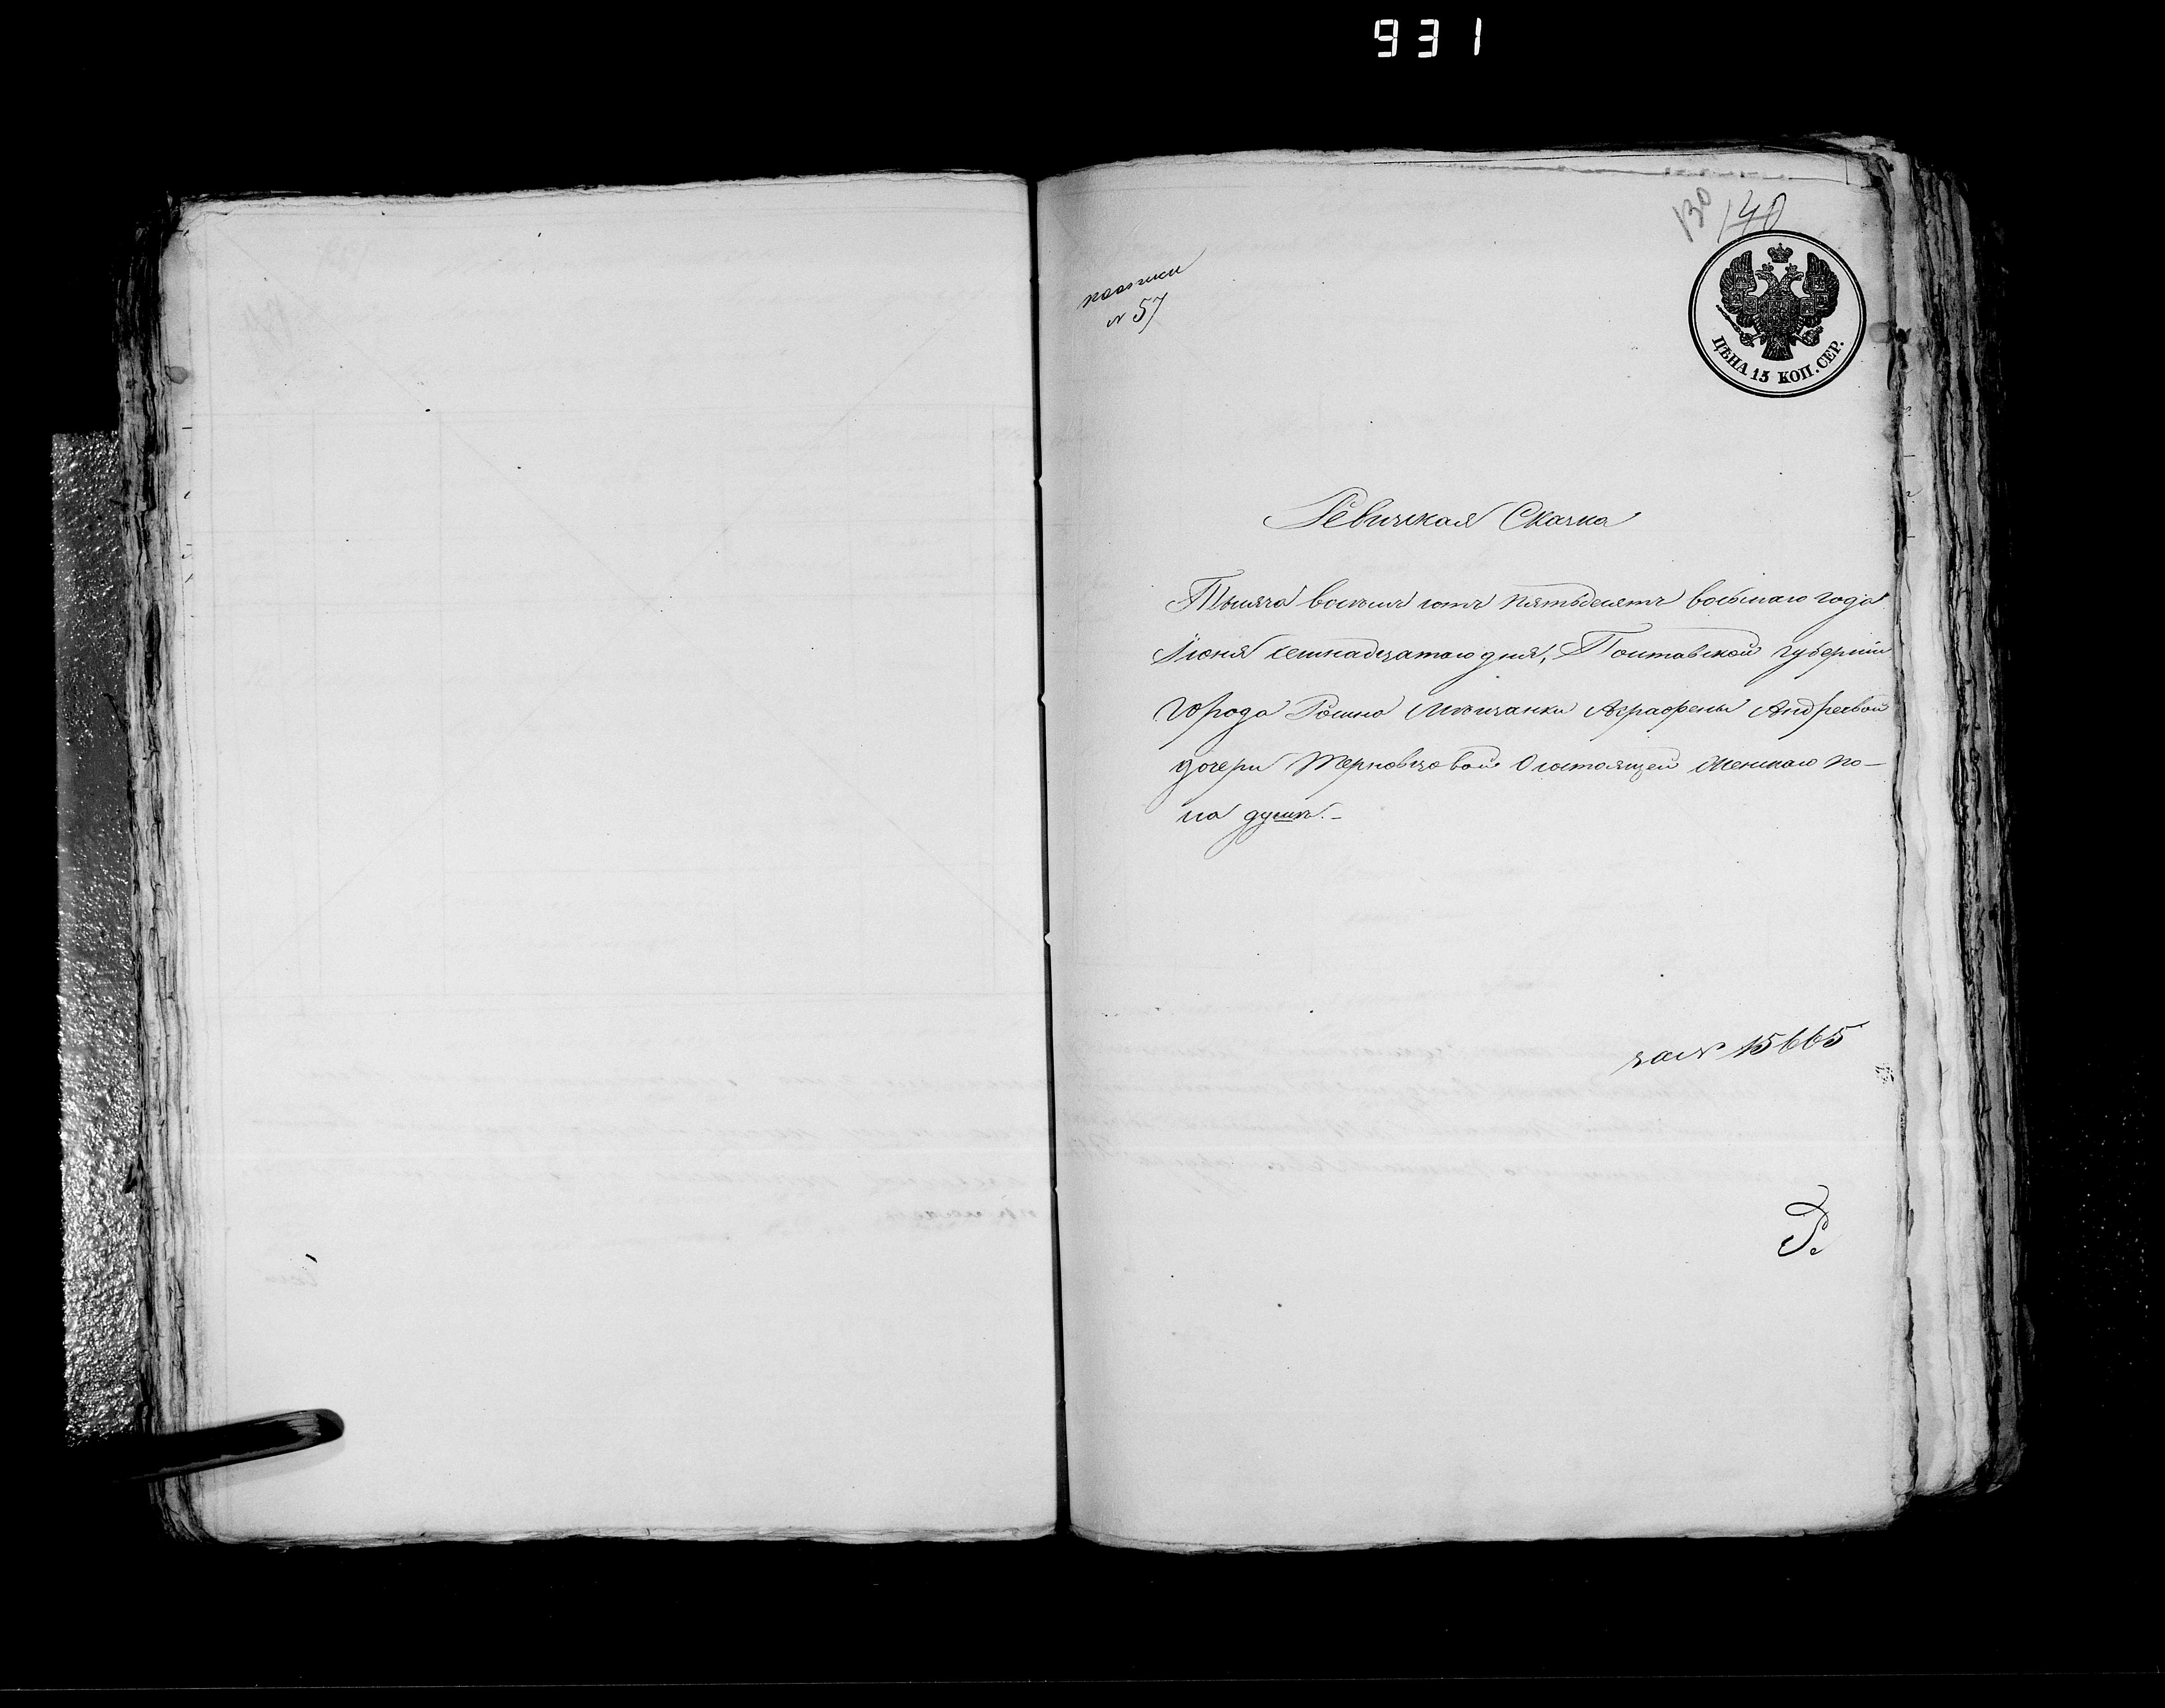 931
130
140
по описи
№ 57
ЦѢНА 15 КОП. СЕР.
Ревизская Сказка
Тысяча восемь сотъ пятьдесятъ восьмаго года
Июня семнадцатаго дня, Полтавской губерніи
города Ромна мѣщанки Аграфены Андреевой
дочери Терновцовой О состоящей женскаго по–
ла душѣ.–
за № 15665